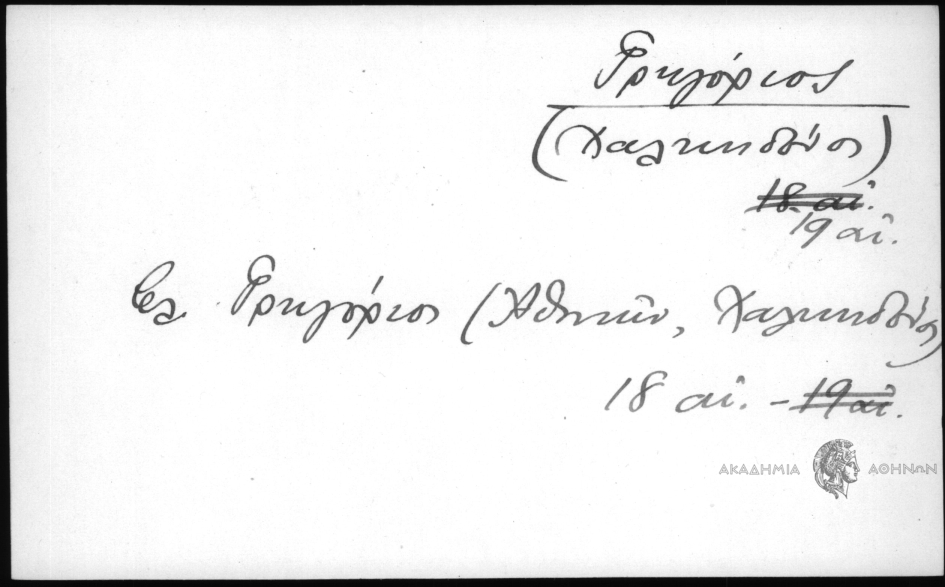 Γρηγόριος
(Χαλκηδόνος)
18 αἰ.
19 αἰ.
Βλ. Γρηγόριος (Ἀθηνῶν, Χαλκηδόνος)
18 αἰ. - 19 αἰ.
ΑΚΑΔΗΜΙΑ ΑΘΗΝΩΝ